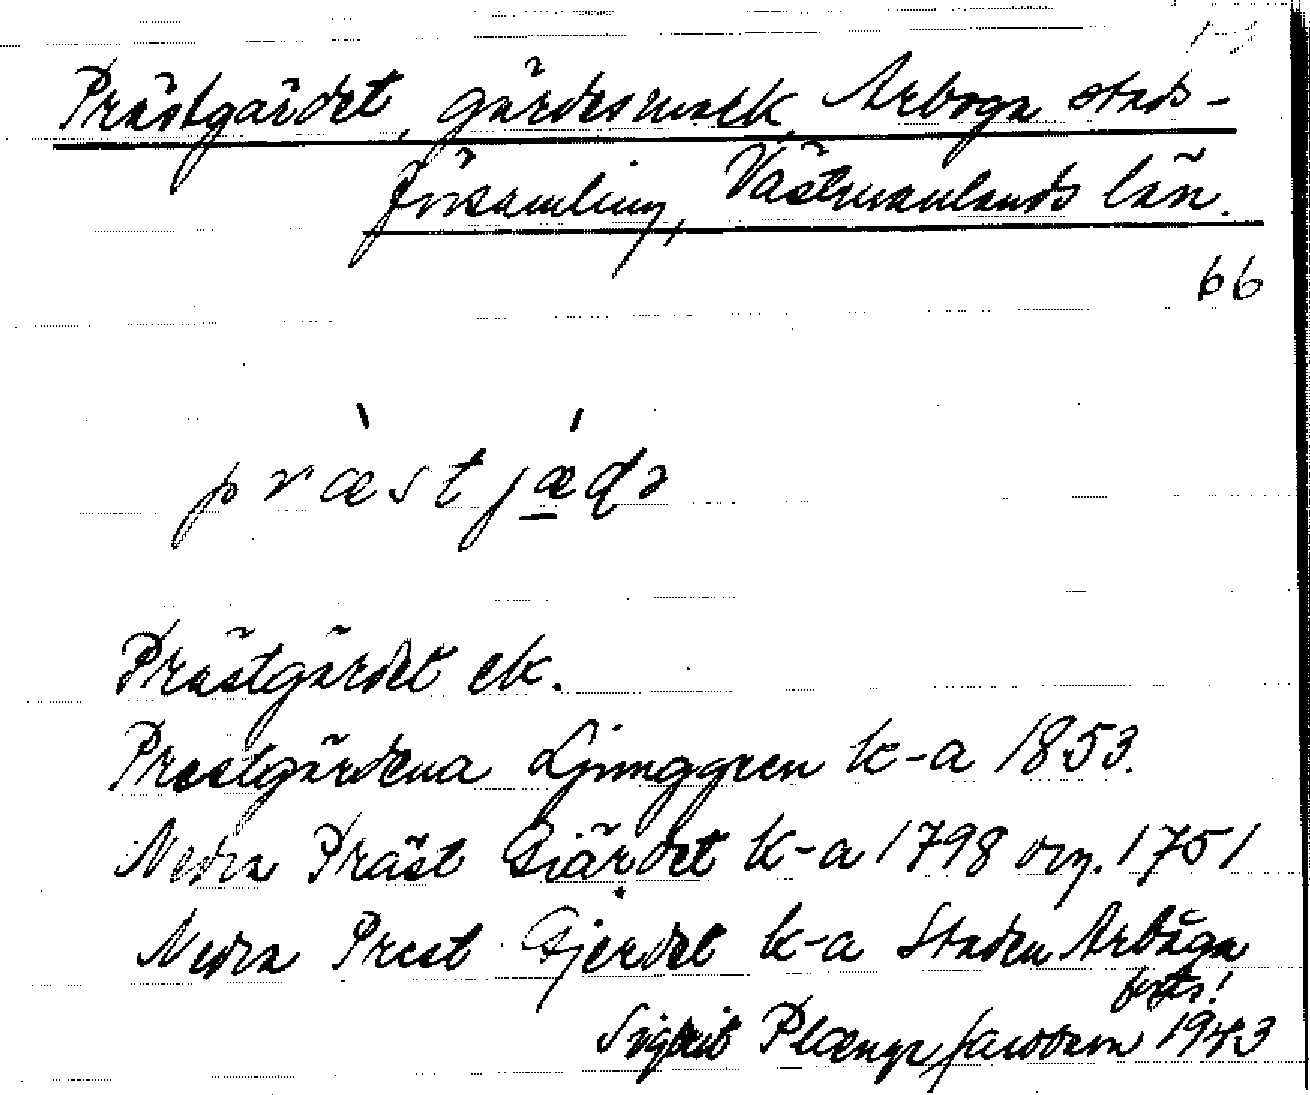 Prästgärdet, gärdesmark, Arboga stads-
församling, Västmanlands län.
66
præstjædə
Prästgärdet ek.
Prestgärdena Ljunggren k-a 1853.
Nedra Präst Giärdet k-a 1798 org. 1751
Nedra Prest Gjerdet k-a Staden Arbåga
forts!
Sigbrit Plænge Jacobson 1943